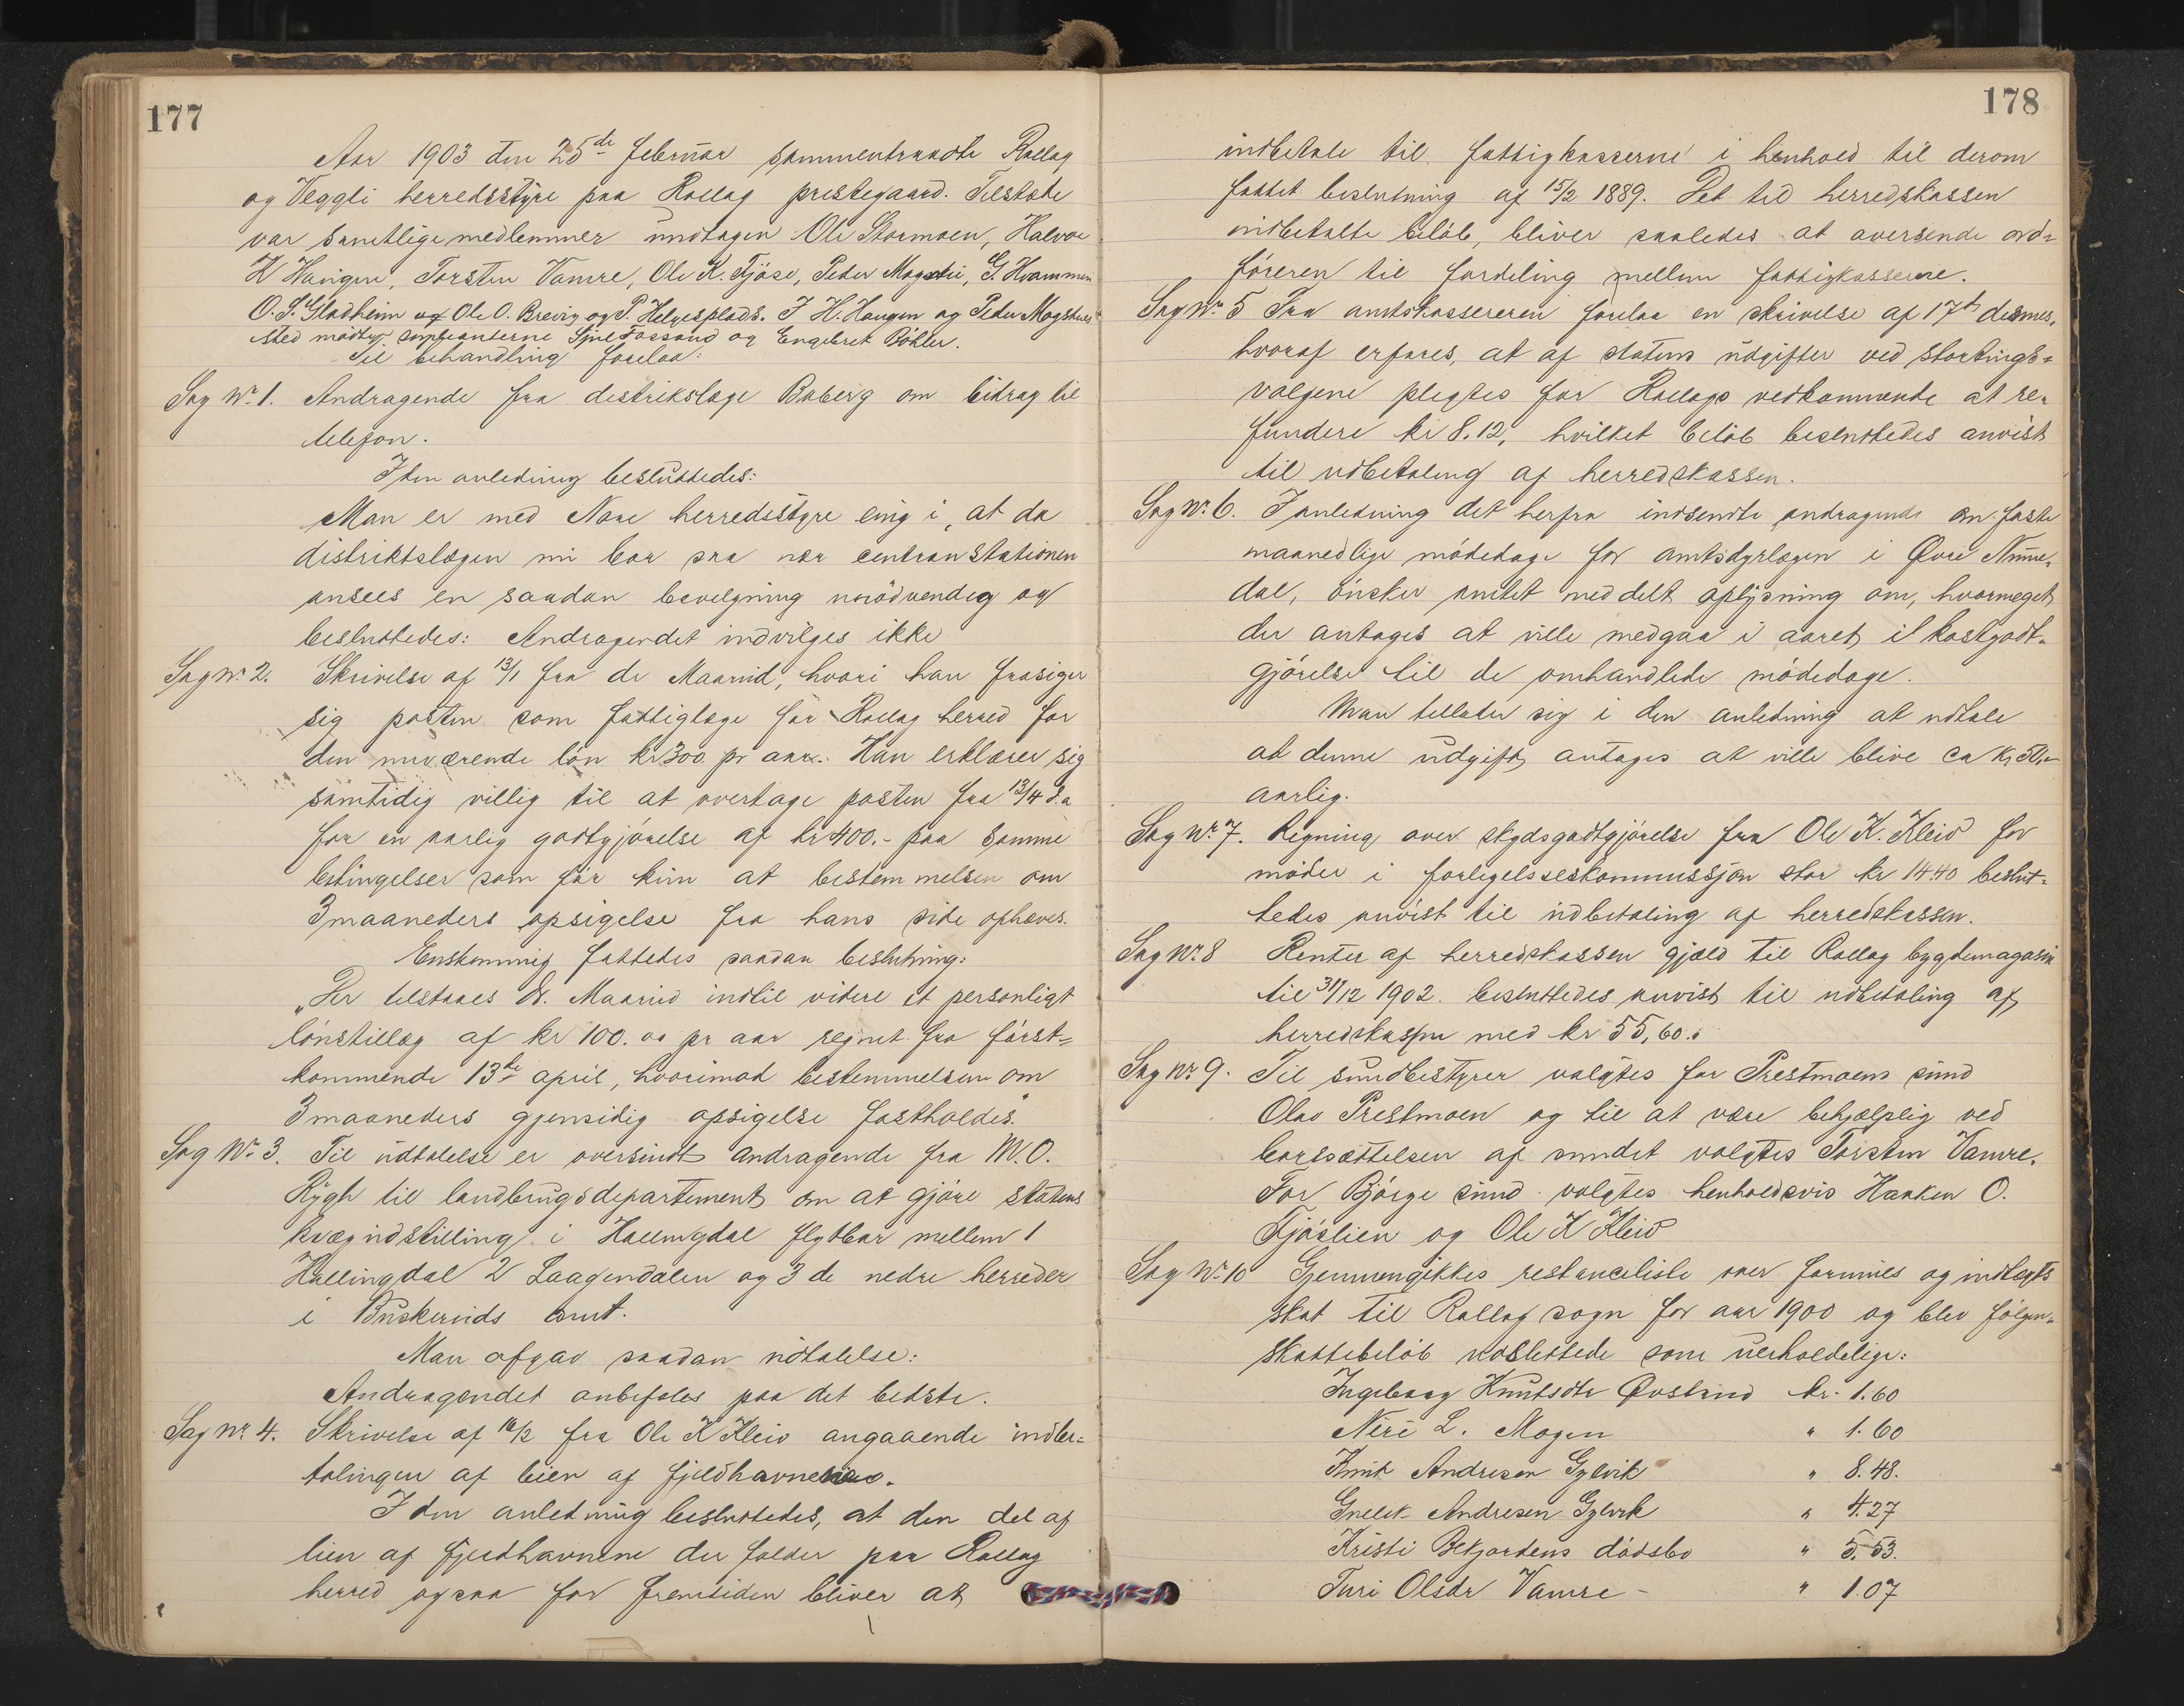 177
Aar 1903 den 25de februar sammentraadte Rollag
og Veggli herredsstyre paa Rollag prestegaard. Tilstede
var samtlige medlemmer undtagen Ole Stormoen, Halvor
K Haugen, Torsten Vamre, Ole K. Fjöse, Peder Mogstu, G. Hvammen
O. S. Gladheim og Ole O. Brevig og P. Helgesplads. I H. Haugen og Peder Mogstues
sted mödte suppleanterne Fossand og Engebret Böhler.
Til behandling forelaa:
Sag Nr. 1. Andragende fra distrikslæge Boberg om bidrag til
telefon.
I den anledning besluttedes:
Man er med Nore herredsstyre enig i, at da
distriktslægen nu bor saa nær centralstationen
ansees en saadan bevilgning unödvendig og
besluttedes: Andragendet indvilges ikke
Sag Nr. 2. Skrivelse af 13/1 fra dr Maarud, hvori han frasiger
sig posten som fattiglæge for Rollag herred for
den nuværende lön kr 300 pr aar. Han erklærer sig
samtidig villig til at overtage posten fra 13/4 d.a
for en aarlig godtgjörelse af kr 400.- paa samme
betingelser som för kun at bestemmelsen om
3 maaneders opsigelse fra hans side ophæves.
Enstemmig fattedes saadan beslutning:
"Der tilstaaes Dr. Maarud indtil videre et personligt
lönstillæg af kr 100.00 pr aar regnet fra först=
kommende 13de april, hvorimod bestemmelsen om
3 maaneders gjensidig opsigelse fastholdes."
Sag Nr. 3. Til udtalelse er oversendt andragende fra M. O.
Rygh til landbrugsdepartement om at gjöre statens
kvægindstilling i Hallingdal flytbar mellem 1
Hallingdal 2 Laagendalen og 3 de nedre herreder
i Buskeruds amt.
Man afgav saadan udtalelse:
Andragendet anbefales paa det bedste.
Sag Nr. 4. Skrivelse af 16/2 fra Ole K Kleiv angaaende indbe=
talingen af leien af fjeldhavnene.
I den anledning besluttedes, at den del af
leien af fjeldhavnene der falder paa Rollag
herred ogsaa for fremtiden bliver at
178
indbetale til fattigkasserne i henhold til derom
fattet beslutning af 15/2 1889. Det til herredskassen
indbetalte belöb, bliver saaledes at oversende ord=
föreren til fordeling mellem fattigkasserne.
Sag Nr. 5 Fra amtskassereren forelaa en skrivelse af 17de dennes,
hvoraf erfares, at af statens udgifter ved stortings=
valgene pligtes for Rollags vedkommende at re=
fundere kr 8.12, hvilket belöb besluttedes anvist
til udbetaling af herredskassen.
Sag Nr. 6. I anledning det herfra indsendte andragende om faste
maanedlige mödedage for amtsdyrlægen i Övre Nume=
dal, önsker amtet meddelt oplysning om, hvormeget
der antages at ville medgaa i aaret til kostgodt=
gjörelse til de omhandlede mödedage.
Man tillader sig i den anledning at udtale
at denne udgift antages at ville blive ca kr 50,-
aarlig.
Sag Nr. 7. Regning over skydsgodtgjörelse fra Ole K. Kleiv for
möder i forligelseskommissjon stor kr 14.40 beslut=
tedes anvist til udbetaling af herredskassen.
Sag Nr 8 Renter af herredskassen gjæld til Rollag bygdemagasin
til 31/12 1902. besluttedes anvist til udbetaling af
herredskassen med kr 55,60.
Sag Nr 9. Til sundbestyrer valgtes for Prestmoens sund
Olav Prestmoen og til at være behjælplig ved
bortsættelsen af sundet valgtes Torsten Vamre.
For Bjórge sund valgtes henholdsvis Haaken O.
Fjöslien og Ole K Kleiv
Sag Nr. 10 Gjennemgikkes restanceliste over formues og indtægts
skat til Rollag sogn for aar 1900 og blev fölgen=
skattebelöb udslettede som uerholdelige:
Ingeborg Knutsdtr Övstrud kr. 1.60
L. Mogen " 1.60
Knut Andresen Gylvik " 8.48.
Andresen Gylvik " 4.27
Kristi dödsbo " 5.53.
Turi Olsdr Vamre - " 1.07